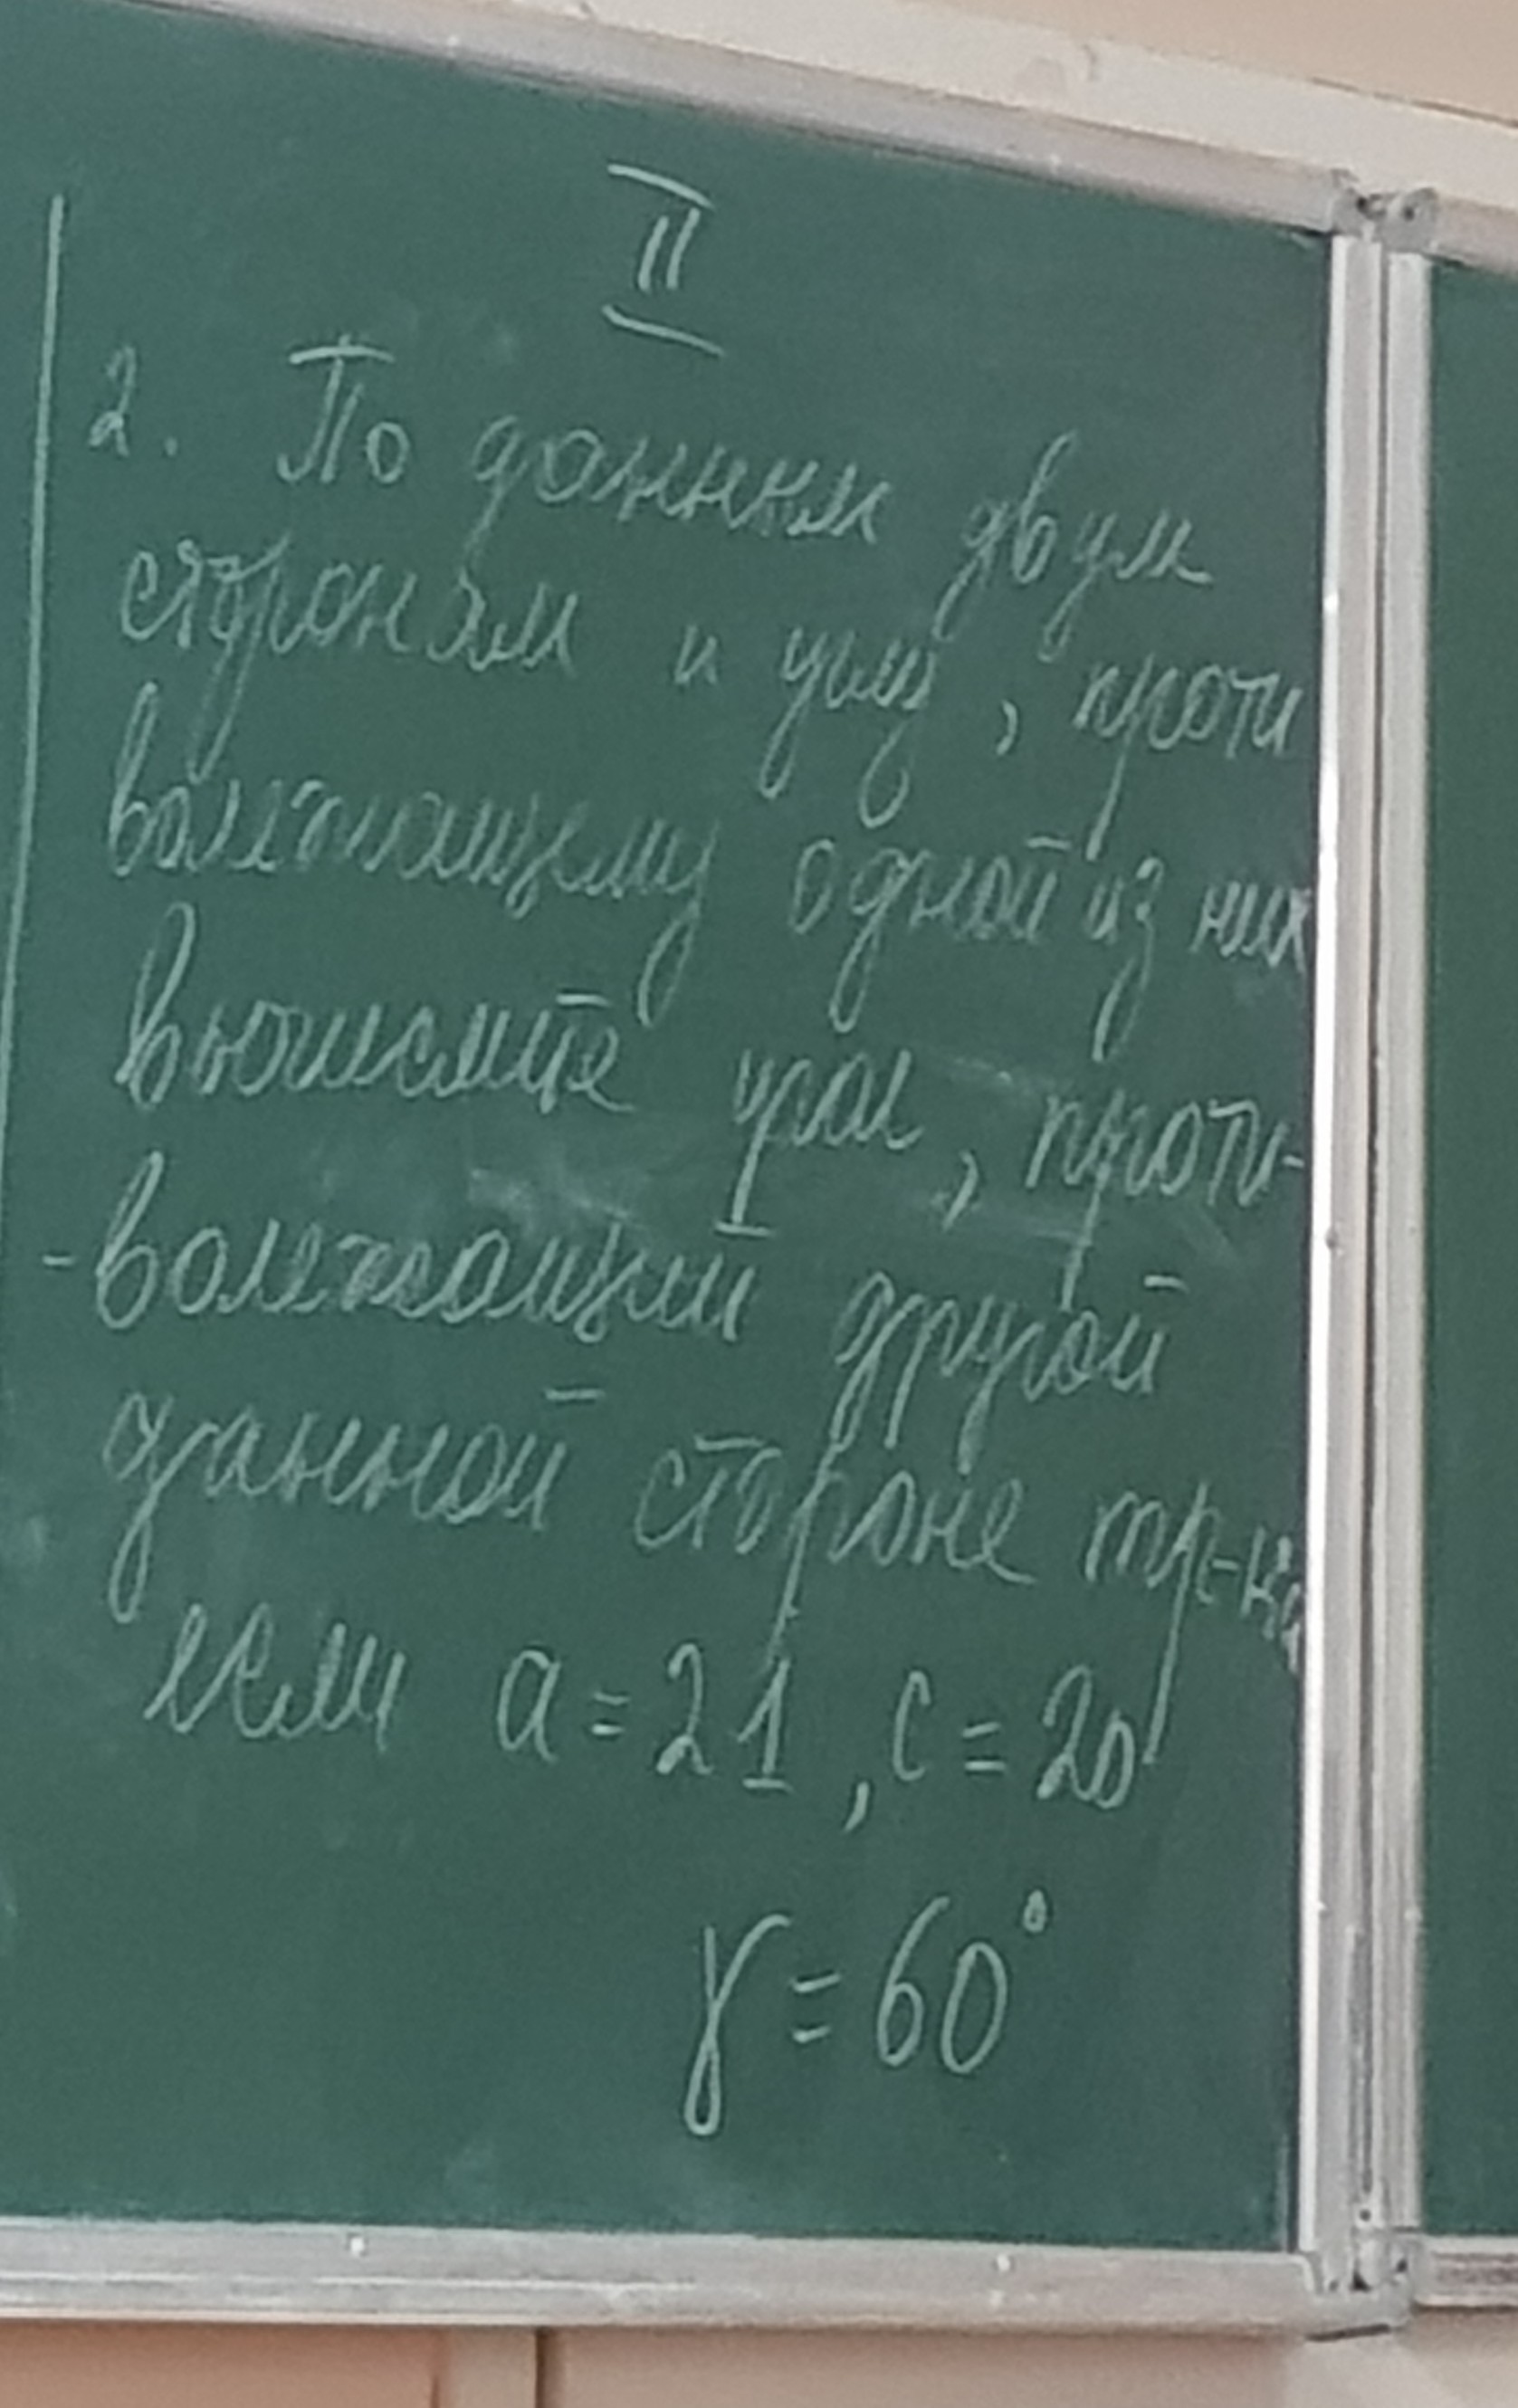 II
2. По данным двум
сторонам и углу, проти
волежащему одной из них
вычислите угол, проти-
-волежащий другой
данной стороне тр-ка,
если a = 21, c = 20
γ = 60°